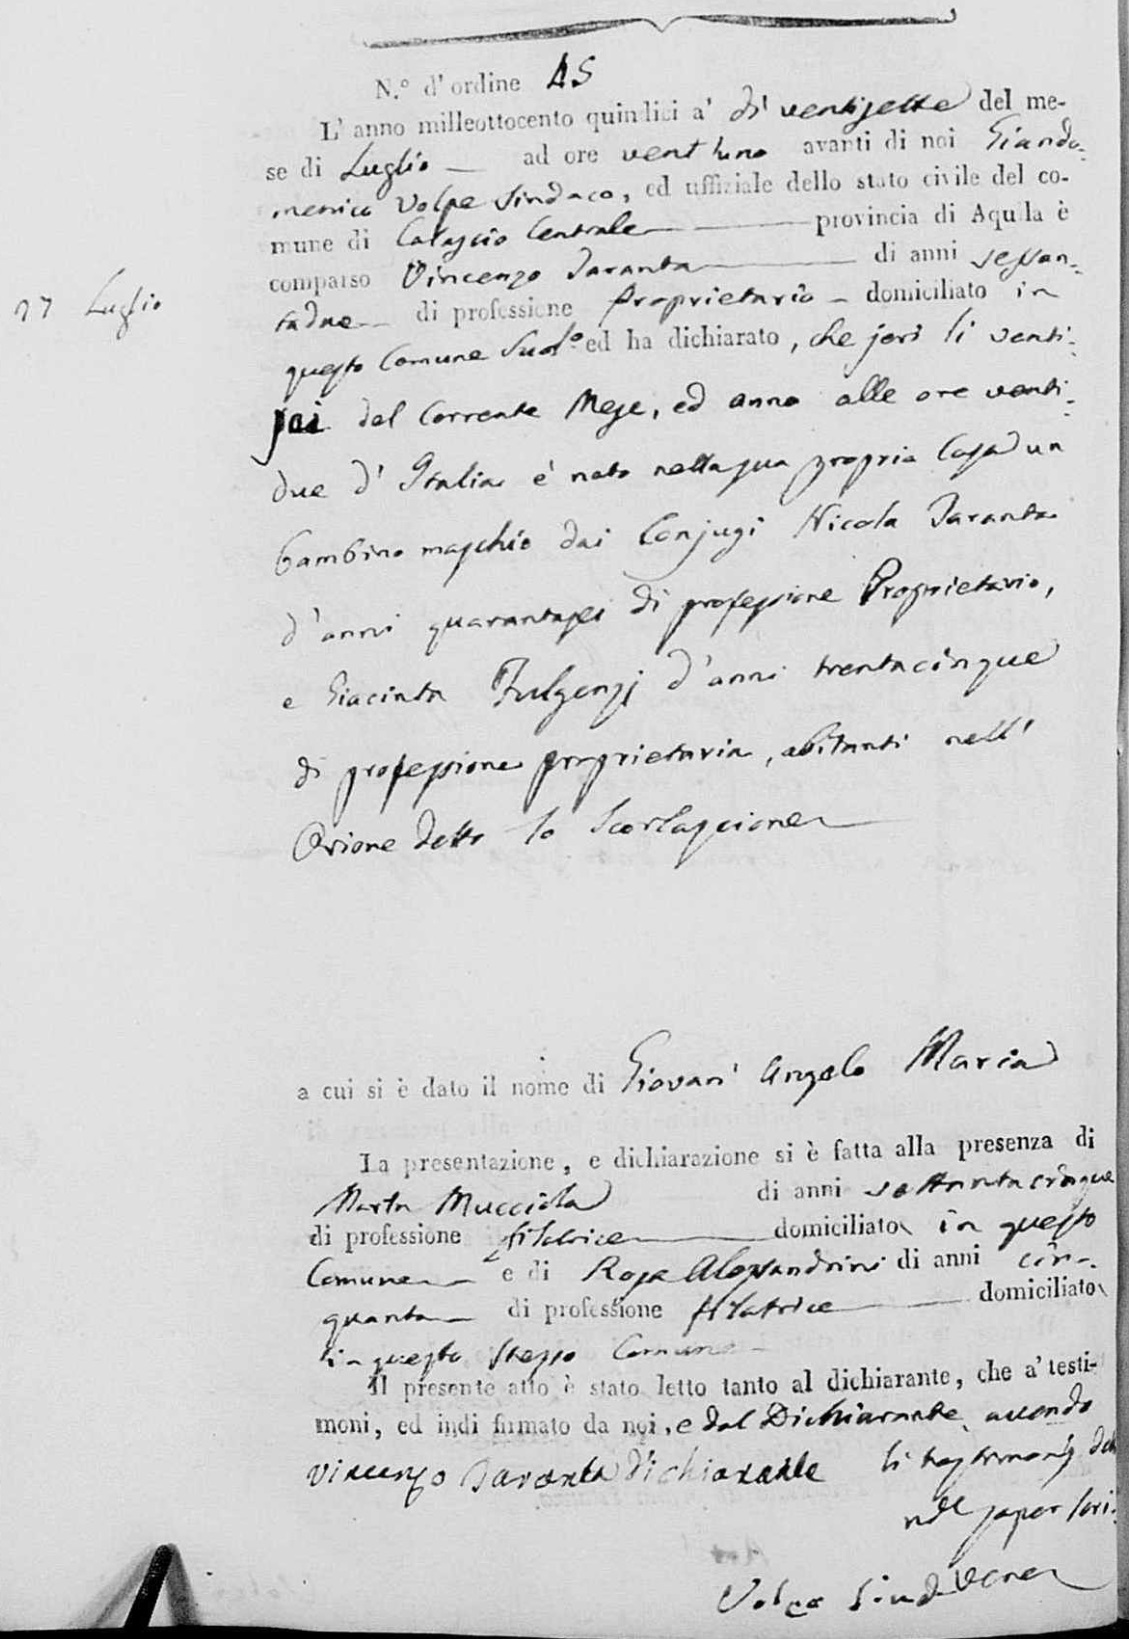 N.° d'ordine 45
L'anno milleottocento quindici a' dì ventisette del me-
se di Luglio ad ore vent'una avanti di noi Giando-
menico Volpe Sindaco, ed uffiziale dello stato civile del co-
mune di Calascio Centrale provincia di Aquila è
comparso Vincenzo Taranta di anni sessan-
27 Luglio
tadue di professione Proprietario domiciliato in
questo Comune Sud.° ed ha dichiarato, che jeri li venti-
sei del Corrente Mese, ed anno alle ore venti-
due d'Italia è nato nella sua propria Casa un
bambino maschio dai Conjugi Nicola Taranta
d'anni quarantasei di professione Proprietario,
e Giacinta Fulgenzj d'anni trentacinque
di professione proprietaria, abitanti nell'
Orione detto lo
a cui si è dato il nome di Giovan' Angelo Maria
La presentazione, e dichiarazione si è fatta alla presenza di
Marta Mucciola di anni settantacinque
di professione filatrice domiciliato in questo
Comune e di Rosa Alessandrini di anni cin-
quanta di professione filatrice domiciliato
in questo stesso Comune
Il presente atto è stato letto tanto al dichiarante, che a' testi-
moni, ed indi firmato da noi, e dal Dichiarante avendo
Vincenzo Taranta dichiarante li testimonj det
non saper scri-
vere
Volpe Sind